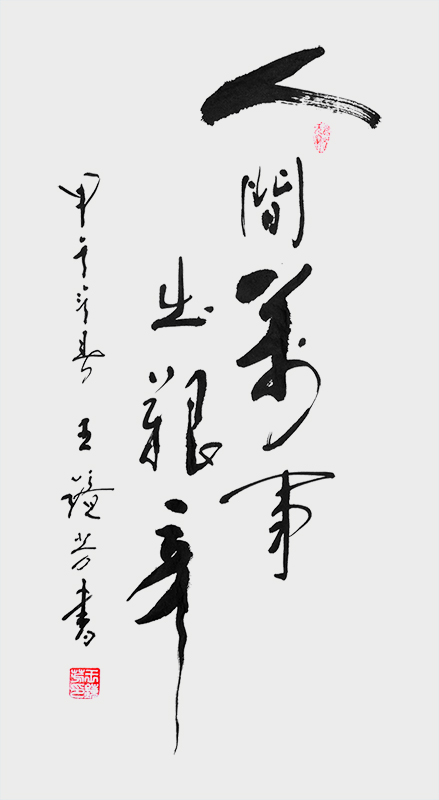 人間萬事
出艱辛
甲午年春 王芳書